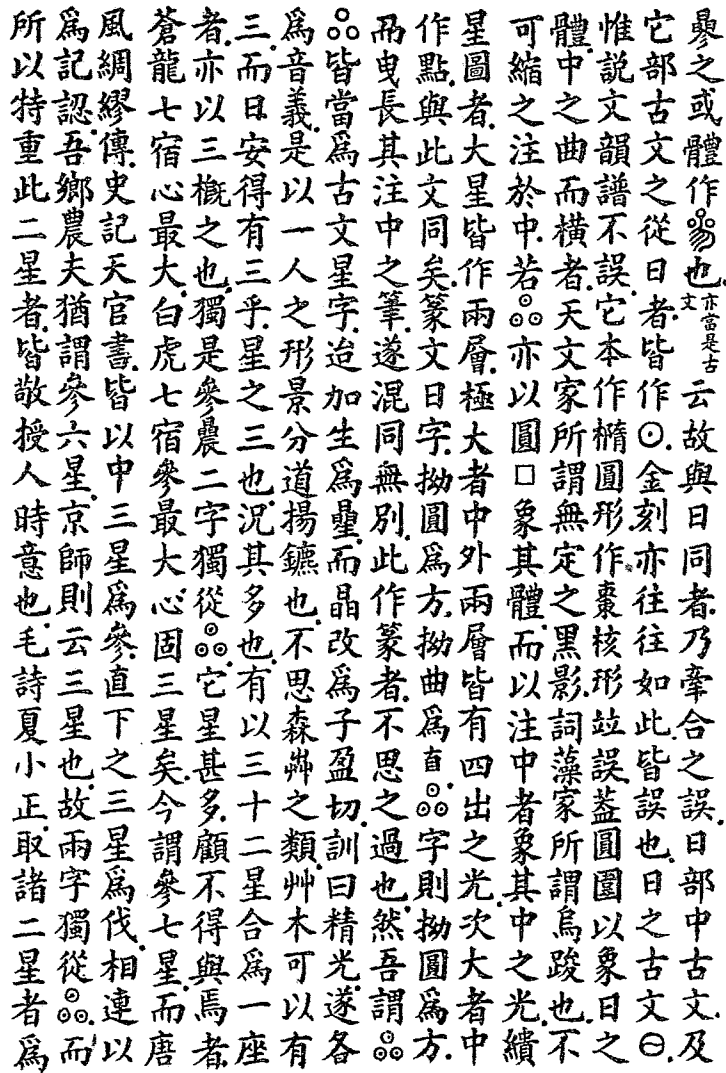 曑之或體作𠻮也亦當是古文云故與日同者乃牽合之誤日部中古文及
它部古文之從日者皆作☉金刻亦往往如此皆誤也日之古文㊀
惟說文韻譜不誤它本作橢圓形作棗核形竝誤葢圓圍以象日之
體中之曲而橫者天文家所謂無定之黑影詞藻家所謂烏踆也不
可縮之注於中若☉☉☉亦以圓□象其體而以注中者象其中之光繢
星圖者大星皆作兩層極大者中外兩層皆有四出之光次大者中
作點與此文同矣篆文日字拗圓爲方拗曲爲𦣹☉☉☉字則拗圓爲方
而曳長其注中之筆遂混同無別此作篆者不思之過也然吾謂☉☉☉
☉☉☉皆當爲古文星字迨加生爲曐而晶改爲子盈切訓曰精光遂各
爲音義是以一人之形景分道揚鑣也不思森艸之類艸木可以有
三而日安得有三乎星之三也況其多也有以三十二星合爲一座
者亦以三槪之也獨是曑曟二字獨從☉☉☉它星甚多顧不得與焉者
蒼龍七宿心最大白虎七宿參最大心固三星矣今謂參七星而唐
風綢繆傳史記天官書皆以中三星爲參直下之三星爲伐相連以
爲記認吾鄉農夫猶謂參六星京師則云三星也故兩字獨從☉☉☉而
所以特重此二星者皆敬授人時意也毛詩夏小正取諸二星者爲